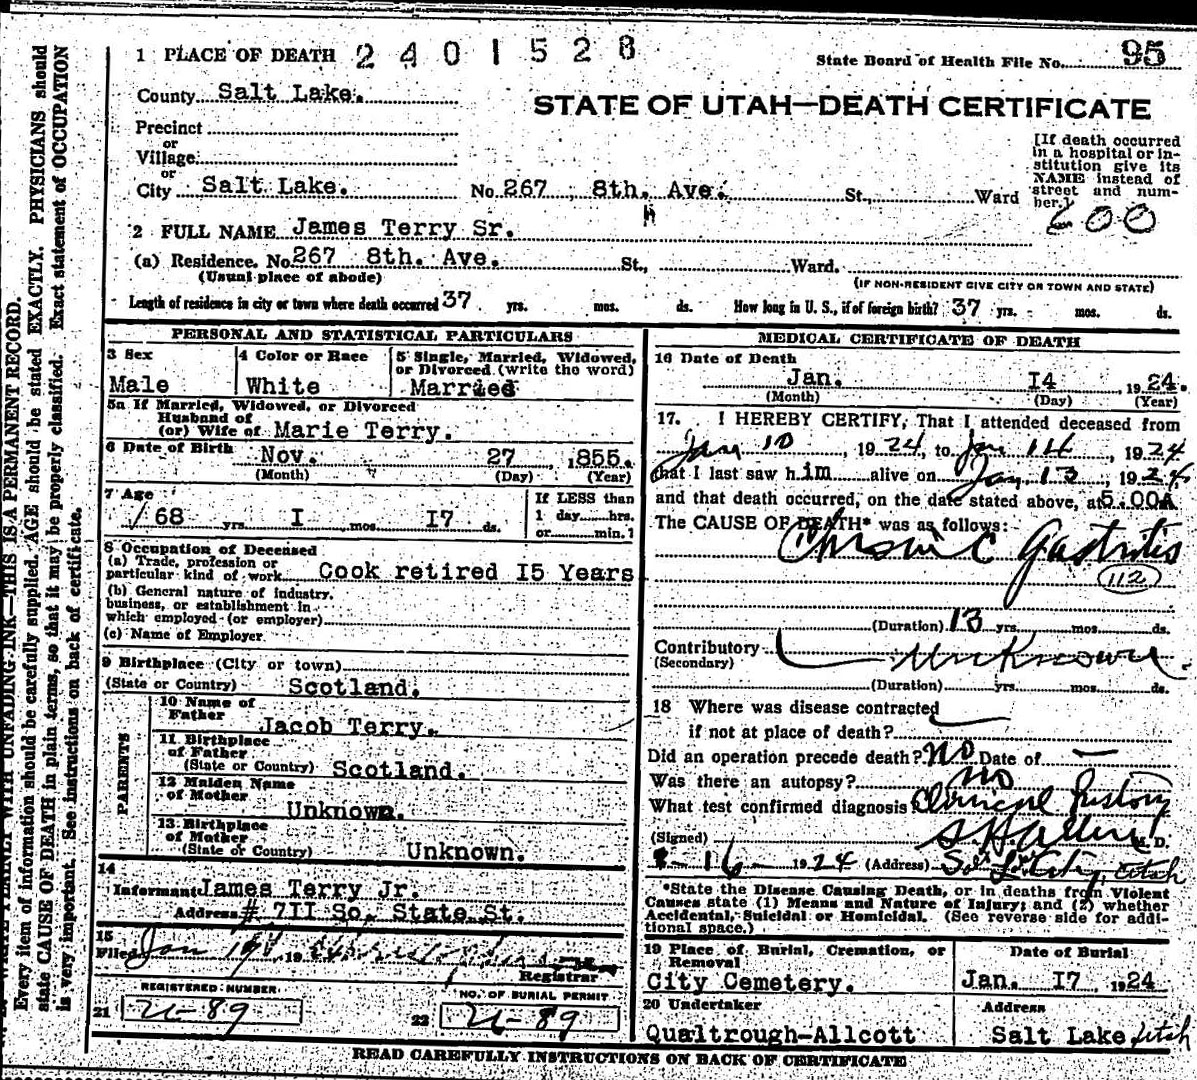 1 PLACE OF DEATH 2401528
State Board of Health File No. 95
County Salt Lake.
STATE OF UTAH—DEATH CERTIFICATE
Precinct
or
Village
or
City Salt Lake. No. 267 8th. Ave. St., Ward
[If death occurred
in a hospital or in-
stitution give its
NAME instead of
street and num-
ber.]
600
2 FULL NAME James Terry Sr.
(a) Residence. No. 267 8th. Ave. St., Ward.
(Usual place of abode) (IF NON-RESIDENT GIVE CITY OR TOWN AND STATE)
Length of residence in city or town where death occurred 37 yrs. mos. ds. How long in U. S., if of foreign birth? 37 yrs. mos. ds.
PERSONAL AND STATISTICAL PARTICULARS
3 Sex
Male
4 Color or Race
White
5 Single, Married, Widowed,
or Divorced (write the word)
Married
5a If Married, Widowed, or Divorced
Husband of
(or) Wife of Marie Terry.
6 Date of Birth Nov. 27 1855.
(Month) (Day) (Year)
7 Age
68 yrs. I mos. I7 ds.
If LESS than
1 day......hrs.
or......min.?
8 Occupation of Deceased
(a) Trade, profession or
particular kind of work Cook retired I5 Years
(b) General nature of industry,
business, or establishment in
which employed (or employer)
(c) Name of Employer
9 Birthplace (City or town)
(State or Country) Scotland.
PARENTS
10 Name of
Father Jacob Terry.
11 Birthplace
of Father
(State or Country) Scotland.
12 Maiden Name
of Mother
Unknown.
13 Birthplace
of Mother
(State or Country) Unknown.
14
Informant James Terry Jr.
Address # 7II So. State St.
15
Filed Jan
Registrar
REGISTERED NUMBER
21 U-89
NO. OF BURIAL PERMIT
22 U-89
MEDICAL CERTIFICATE OF DEATH
16 Date of Death
Jan. I4 1924.
(Month) (Day) (Year)
17. I HEREBY CERTIFY, That I attended deceased from
Jan 10, 1924, to Jan 14, 1924
that I last saw him alive on Jan 13, 1924
and that death occurred, on the date stated above, at 5.00A
The CAUSE OF DEATH* was as follows:
Chronic Gastritis
112
(Duration) 13 yrs. mos. ds.
Contributory Unknown
(Secondary)
(Duration) yrs. mos. ds.
18 Where was disease contracted
if not at place of death?
Did an operation precede death? No Date of —
Was there an autopsy? no
What test confirmed diagnosis Clinical history
(Signed) M. D.
1-16-1924 (Address) Salt Lake City, Utah
*State the Disease Causing Death, or in deaths from Violent
Causes state (1) Means and Nature of Injury; and (2) whether
Accidental, Suicidal or Homicidal. (See reverse side for addi-
tional space.)
19 Place of Burial, Cremation, or
Removal
City Cemetery.
Date of Burial
Jan. I7 1924
20 Undertaker
Qualtrough-Allcott
Address
Salt Lake Utah
READ CAREFULLY INSTRUCTIONS ON BACK OF CERTIFICATE
WRITE PLAINLY WITH UNFADING INK—THIS IS A PERMANENT RECORD.
Every item of information should be carefully supplied. AGE should be stated EXACTLY. PHYSICIANS should
state CAUSE OF DEATH in plain terms, so that it may be properly classified. Exact statement of OCCUPATION
is very important. See instructions on back of certificate.